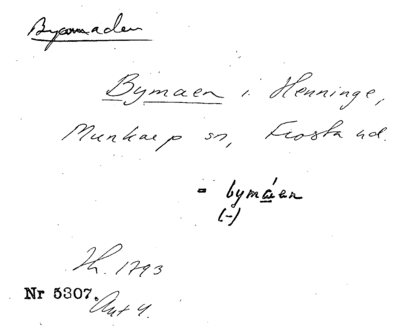 Bymaden
Bymaen i Henninge,
Munkarp sn, Frosta hd.
= bymáen
(-)
Th. 1793
Nr 5307.
Ant 4.